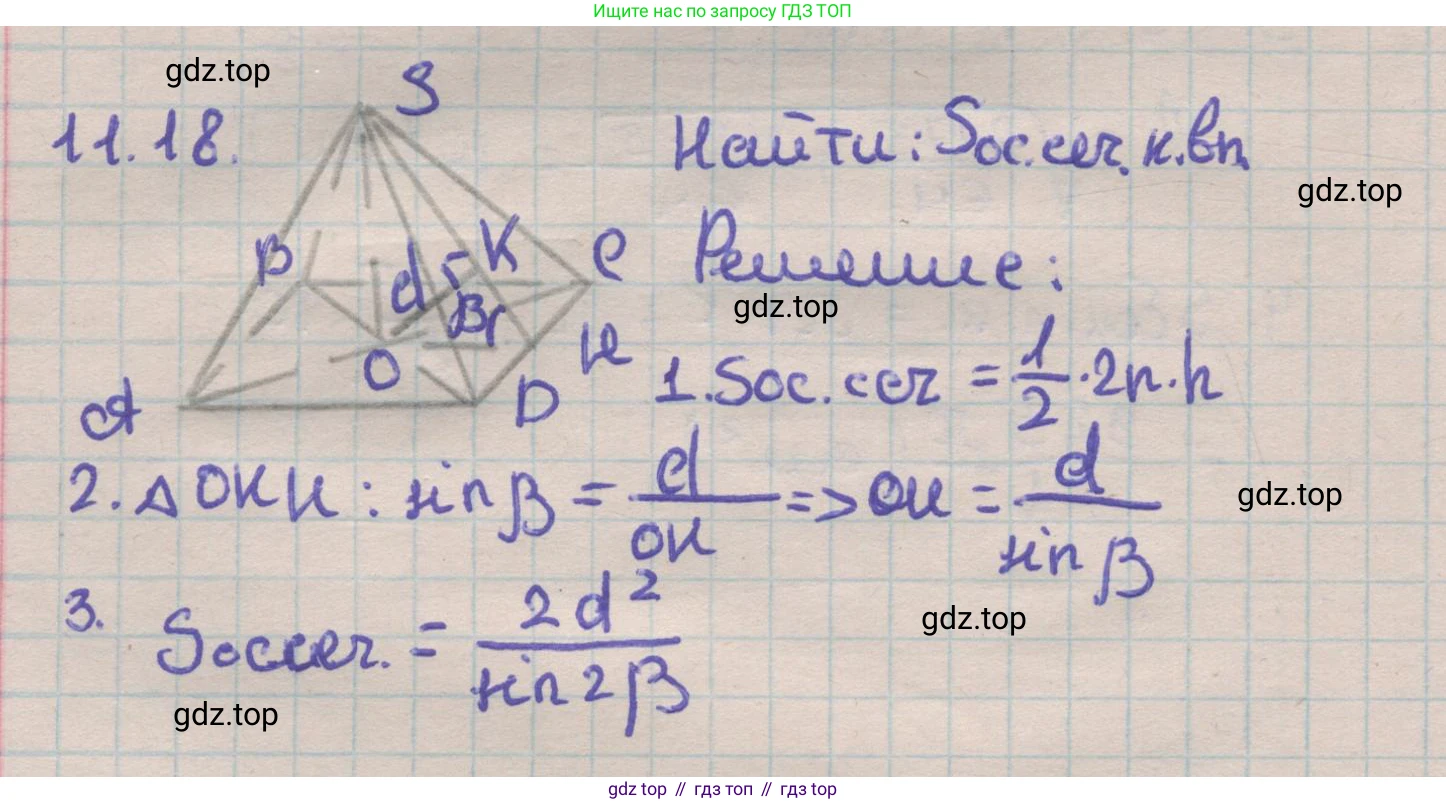 Ищите нас по запросу ГДЗ ТОП
gdz.top
S
11.18.
Найти: Sос.сеч. к.вп.
gdz.top
B
d
K
C
Решение:
gdz.top
β
O
H
A
D
1. Sос.сеч = 1/2 · 2r · h
2. △ OKH : sin β = d/OH => OH = d/sin β
gdz.top
3. Sоссеч. = 2d²/sin 2β
gdz.top
gdz.top
gdz top // гдз топ // gdz top